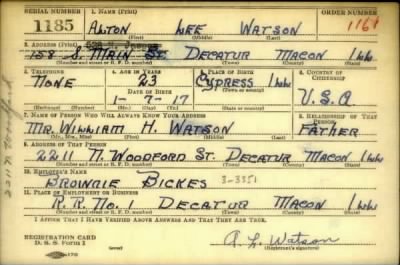 SERIAL NUMBER 1. NAME (Print) ORDER NUMBER
1185 ALTON LEE WATSON 1161
(First) (Middle) (Last)
2. ADDRESS (Print)
158 S. MAIN ST. DECATUR MACON ILL
(Number and street or R. F. D. number) (Town) (County) (State)
3. TELEPHONE 4. AGE IN YEARS 5. PLACE OF BIRTH 6. COUNTRY OF CITIZENSHIP
NONE 23 CYPRESS ILL U.S.A
DATE OF BIRTH
1-7-17
(Exchange) (No.) (Mo.) (Day) (Yr.) (Town or county) (State or country)
7. NAME OF PERSON WHO WILL ALWAYS KNOW YOUR ADDRESS 8. RELATIONSHIP OF THAT PERSON
MR. WILLIAM H. WATSON FATHER
(Mr., Mrs., Miss) (First) (Middle) (Last)
9. ADDRESS OF THAT PERSON
2211 N. WOODFORD ST. DECATUR MACON ILL
(Number and street or R. F. D. number) (Town) (County) (State)
10. EMPLOYER'S NAME
BROWNIE BICKES 3-3351
11. PLACE OF EMPLOYMENT OR BUSINESS
R.R. NO. 1 DECATUR MACON ILL
(Number and street or R. F. D. number) (Town) (County) (State)
I AFFIRM THAT I HAVE VERIFIED ABOVE ANSWERS AND THAT THEY ARE TRUE.
REGISTRATION CARD
D. S. S. Form 1
A. L. Watson
(Registrant's signature)
2211 N Woodford